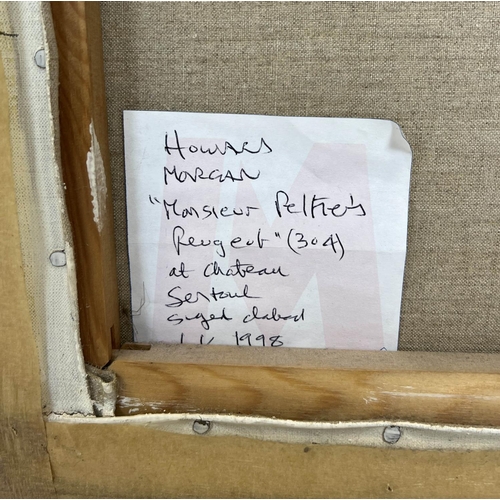 HOWARD
MORGAN
"Monsieur Peltier's
Peugeot" (304)
at chateau
signed dated
1998